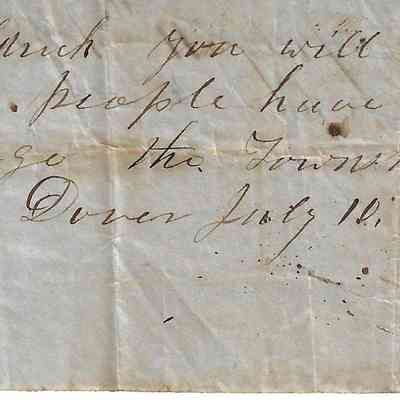 you will
people have
go the Town
Dover July 10,